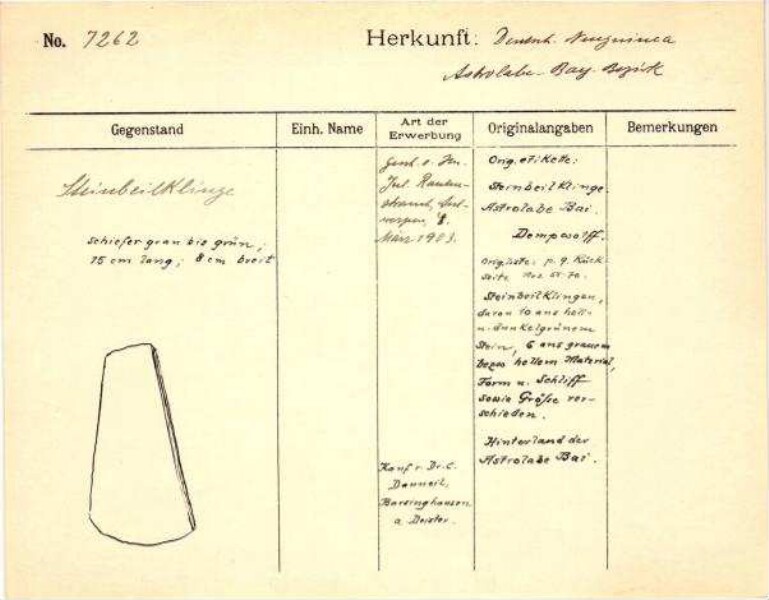 No. 7262
Herkunft: Deutsch. Neuguinea
Astrolabe-Bay-Bezirk
Gegenstand
Einh. Name
Art der
Erwerbung
Originalangaben
Bemerkungen
Steinbeilklinge
schiefergrau bis grün;
15 cm lang; 8 cm breit
Gesch. v. Hn.
Jul. Rauten-
strauch, Ant-
werpen, 8.
März 1903.
Kauf v. Dr. C.
Danneil,
Barsinghausen
a. Deister.
Orig. etikette:
Steinbeilklinge
Astrolabe Bai.
Dempwolff.
Orig. liste: p. 9. Rück-
seite Nos
Steinbeilklingen,
davon 10 aus hell-
u. dunkelgrünem
Stein, 6 aus grauem
bezw hellem Material,
Form u. Schliff
sowie Größe ver-
schieden.
Hinterland der
Astrolabe Bai.